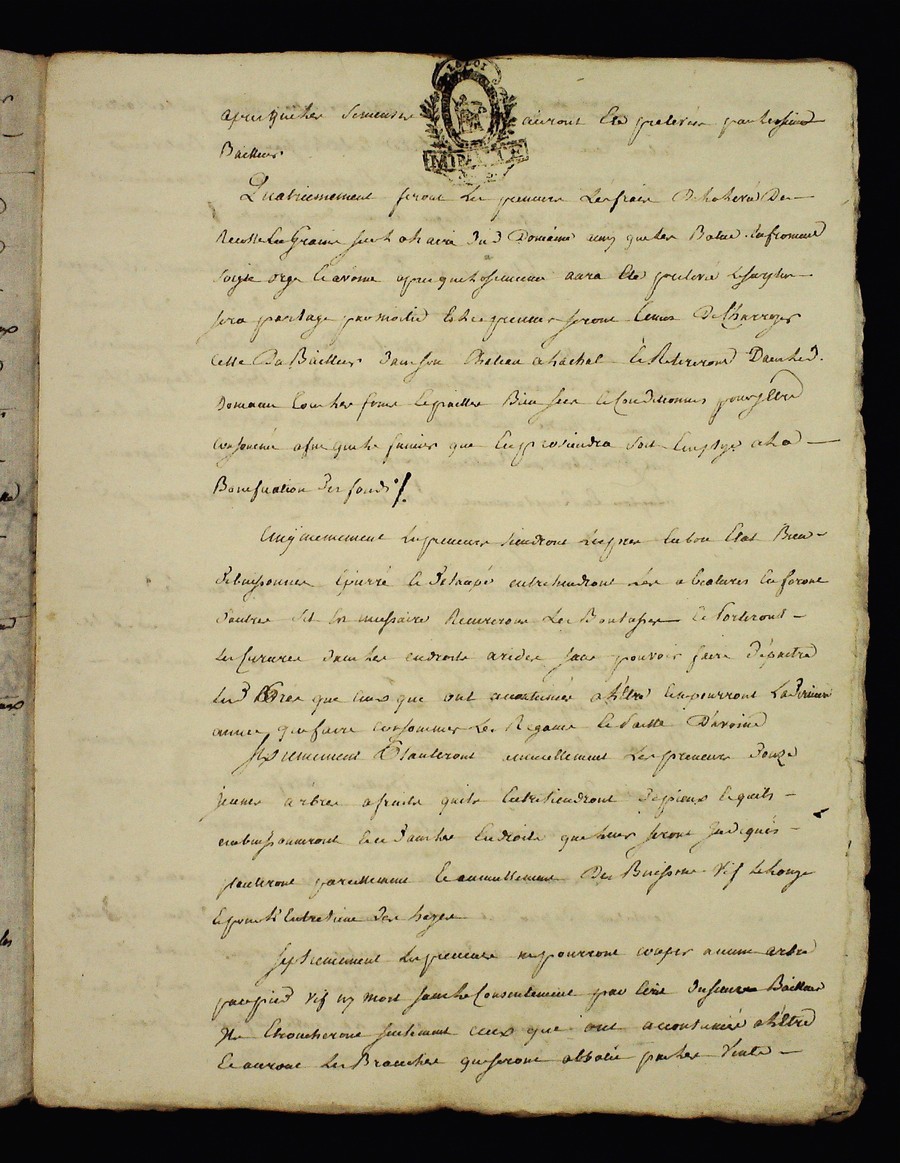 apres que les semences auront été prelevées par led sieur
Bailleur.
Quatriemement seront les preneurs les frais de la levée De
Recolte les Grains sur l'aire dud Domaine ainsy que les Batre. Le froment
seigle orge et avoine apres que la semence aura été prelevé le surplus
sera partage par moitié et les preneurs seront tenus de charroyer
celle du Bailleur dans son Chateau a et Retireront Dans led.
Domaine tout les foins et pailles Bien secs et Conditionnés pour y être
consommé afin que le fumier que en proviendra soit Employé a la
Bonification des fonds /.
Cinquiemement les preneurs tiendront les prés en bon Etat Bien
debuissonnés épierré et detaupé entretiendront les abreuvoirs en feront
d'autres s'il est necessaire Recureront Les et Porteront
les Curures dans les endroits arides sans pouvoir faire depaitre
lesd prés que ceux que ont accoutumée a L'être et ne pourront La derniere
année que faire consommer les Regains et Paille D'avoine
Sixiemement Planteront annuellement Les preneurs douze
jeunes arbres a fruits quils Entretiendront de pieux et quils
embuissonneront et ce dans les Endroits que leurs seront Indiqués
planteront pareillement et annuellement Des Buissons vif le long
et pour L'Entretient des hayes
Septiemement les preneurs ne pourront couper aucun arbre
par pied vif ny mort sans le Consentement par écrit du sieur Bailleur
Ne Ebrancheront seulement ceux que ont accoutumée a L'être
et auront les Branches que seront abbatu par les vents